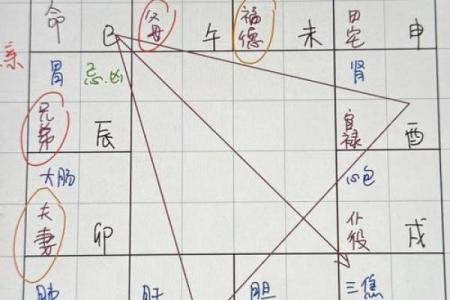 命 巳 父母 午 福德 未 田宅 申
亲
胃 忌.凶 肾
兄弟 辰 官禄 酉
大肠 心包
夫妻 卯 仆役 戌
肺 肝 胆 三焦